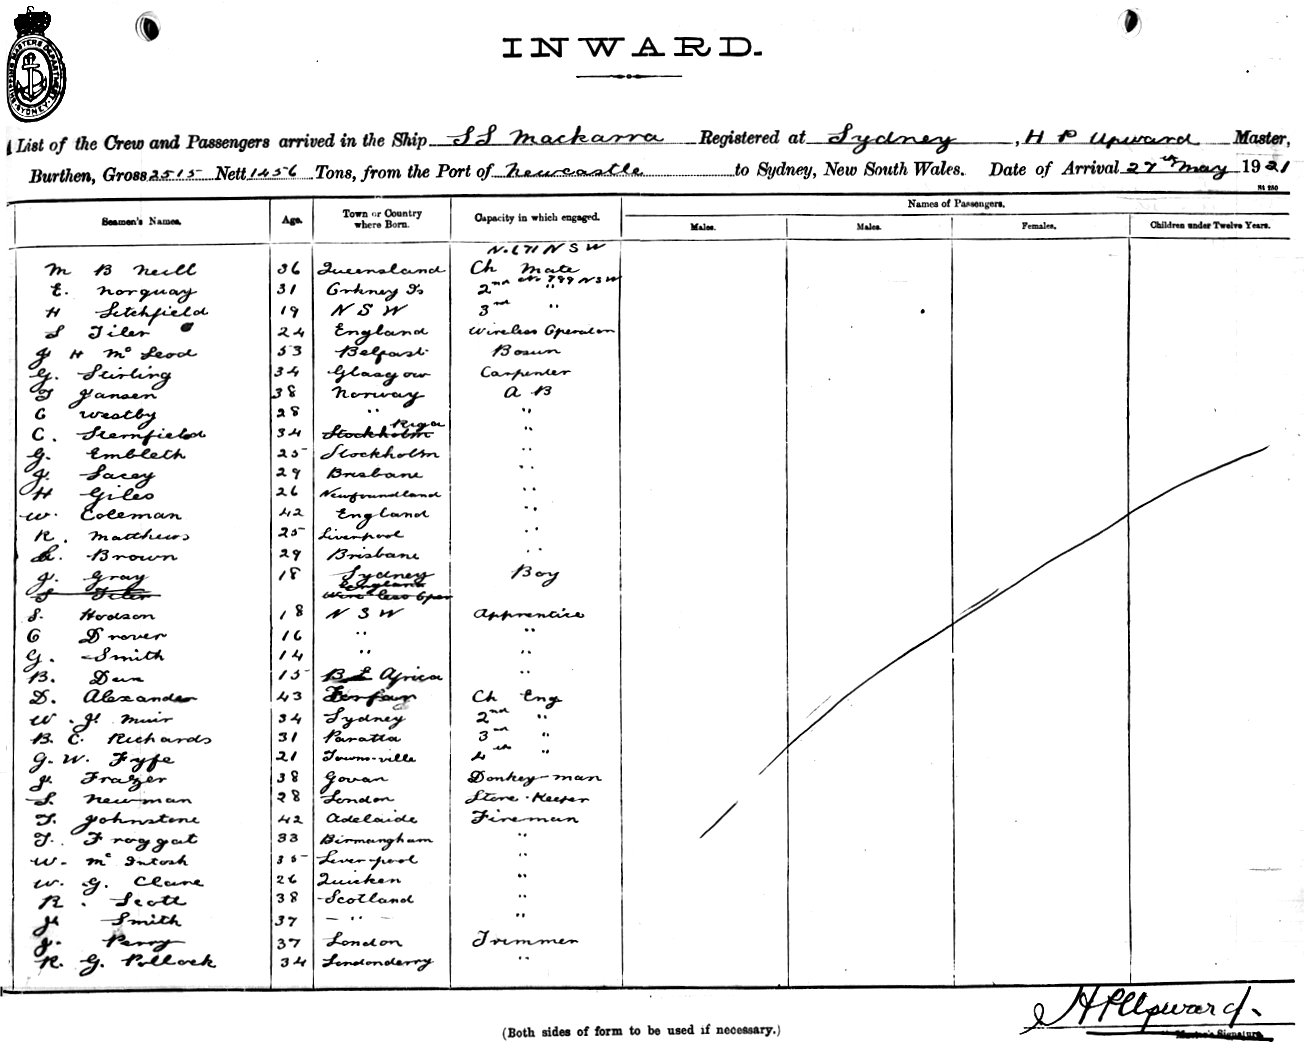 SHIPPING MASTERS DEPARTMENT SYDNEY
INWARD.
List of the Crew and Passengers arrived in the Ship SS Mackarra Registered at Sydney, H P Upward Master,
Burthen, Gross 2515 Nett 1456 Tons, from the Port of Newcastle to Sydney, New South Wales. Date of Arrival 27th May 1921
Seamen's Names. Age. Town or Country where Born. Capacity in which engaged. Names of Passengers.
Males. Males. Females. Children under Twelve Years.
N. 671 N S W
M B Neill 36 Queensland Ch Mate
No 799 NSW
E. Norquay 31 Orkney Is 2nd "
H Litchfield 19 N S W 3rd "
S Tiler 24 England Wireless Operator
J H Mc Leod 53 Belfast Bosun
G. Stirling 34 Glasgow Carpenter
T Jansen 38 Norway A B
C Westby 28 " "
C. Sternfield 34 Stockholm Riga "
G. Embleth 25 Stockholm "
J. Lacey 29 Brisbane "
H Giles 26 Newfoundland "
W. Coleman 42 England "
R. Matthews 25 Liverpool "
Brown 29 Brisbane "
J. Gray 18 Sydney Boy
S Tiler England Wireless Oper
S. Hodson 18 N S W Apprentice
C Drover 16 " "
G. Smith 14 " "
B. 15 B E Africa "
D. Alexander 43 Forfar Ch Eng
W. J. Muir 34 Sydney 2nd "
B. C. Richards 31 Paratta 3rd "
G. W. Fyfe 21 Towns-ville 4th "
J. Frazer 38 Govan Donkey-man
S. Newman 28 London Store-Keeper
T. Johnstone 42 Adelaide Fireman
T. Froggat 33 Birmangham "
W. Mc Intosh 35 Liver-pool "
W. G. Clare 26 "
R. Scott 38 Scotland "
J. Smith 37 - " - "
J. Perry 37 London Trimmer
R. G. Pollock 34 Londonderry "
H P Upward.
Master's Signature.
(Both sides of form to be used if necessary.)